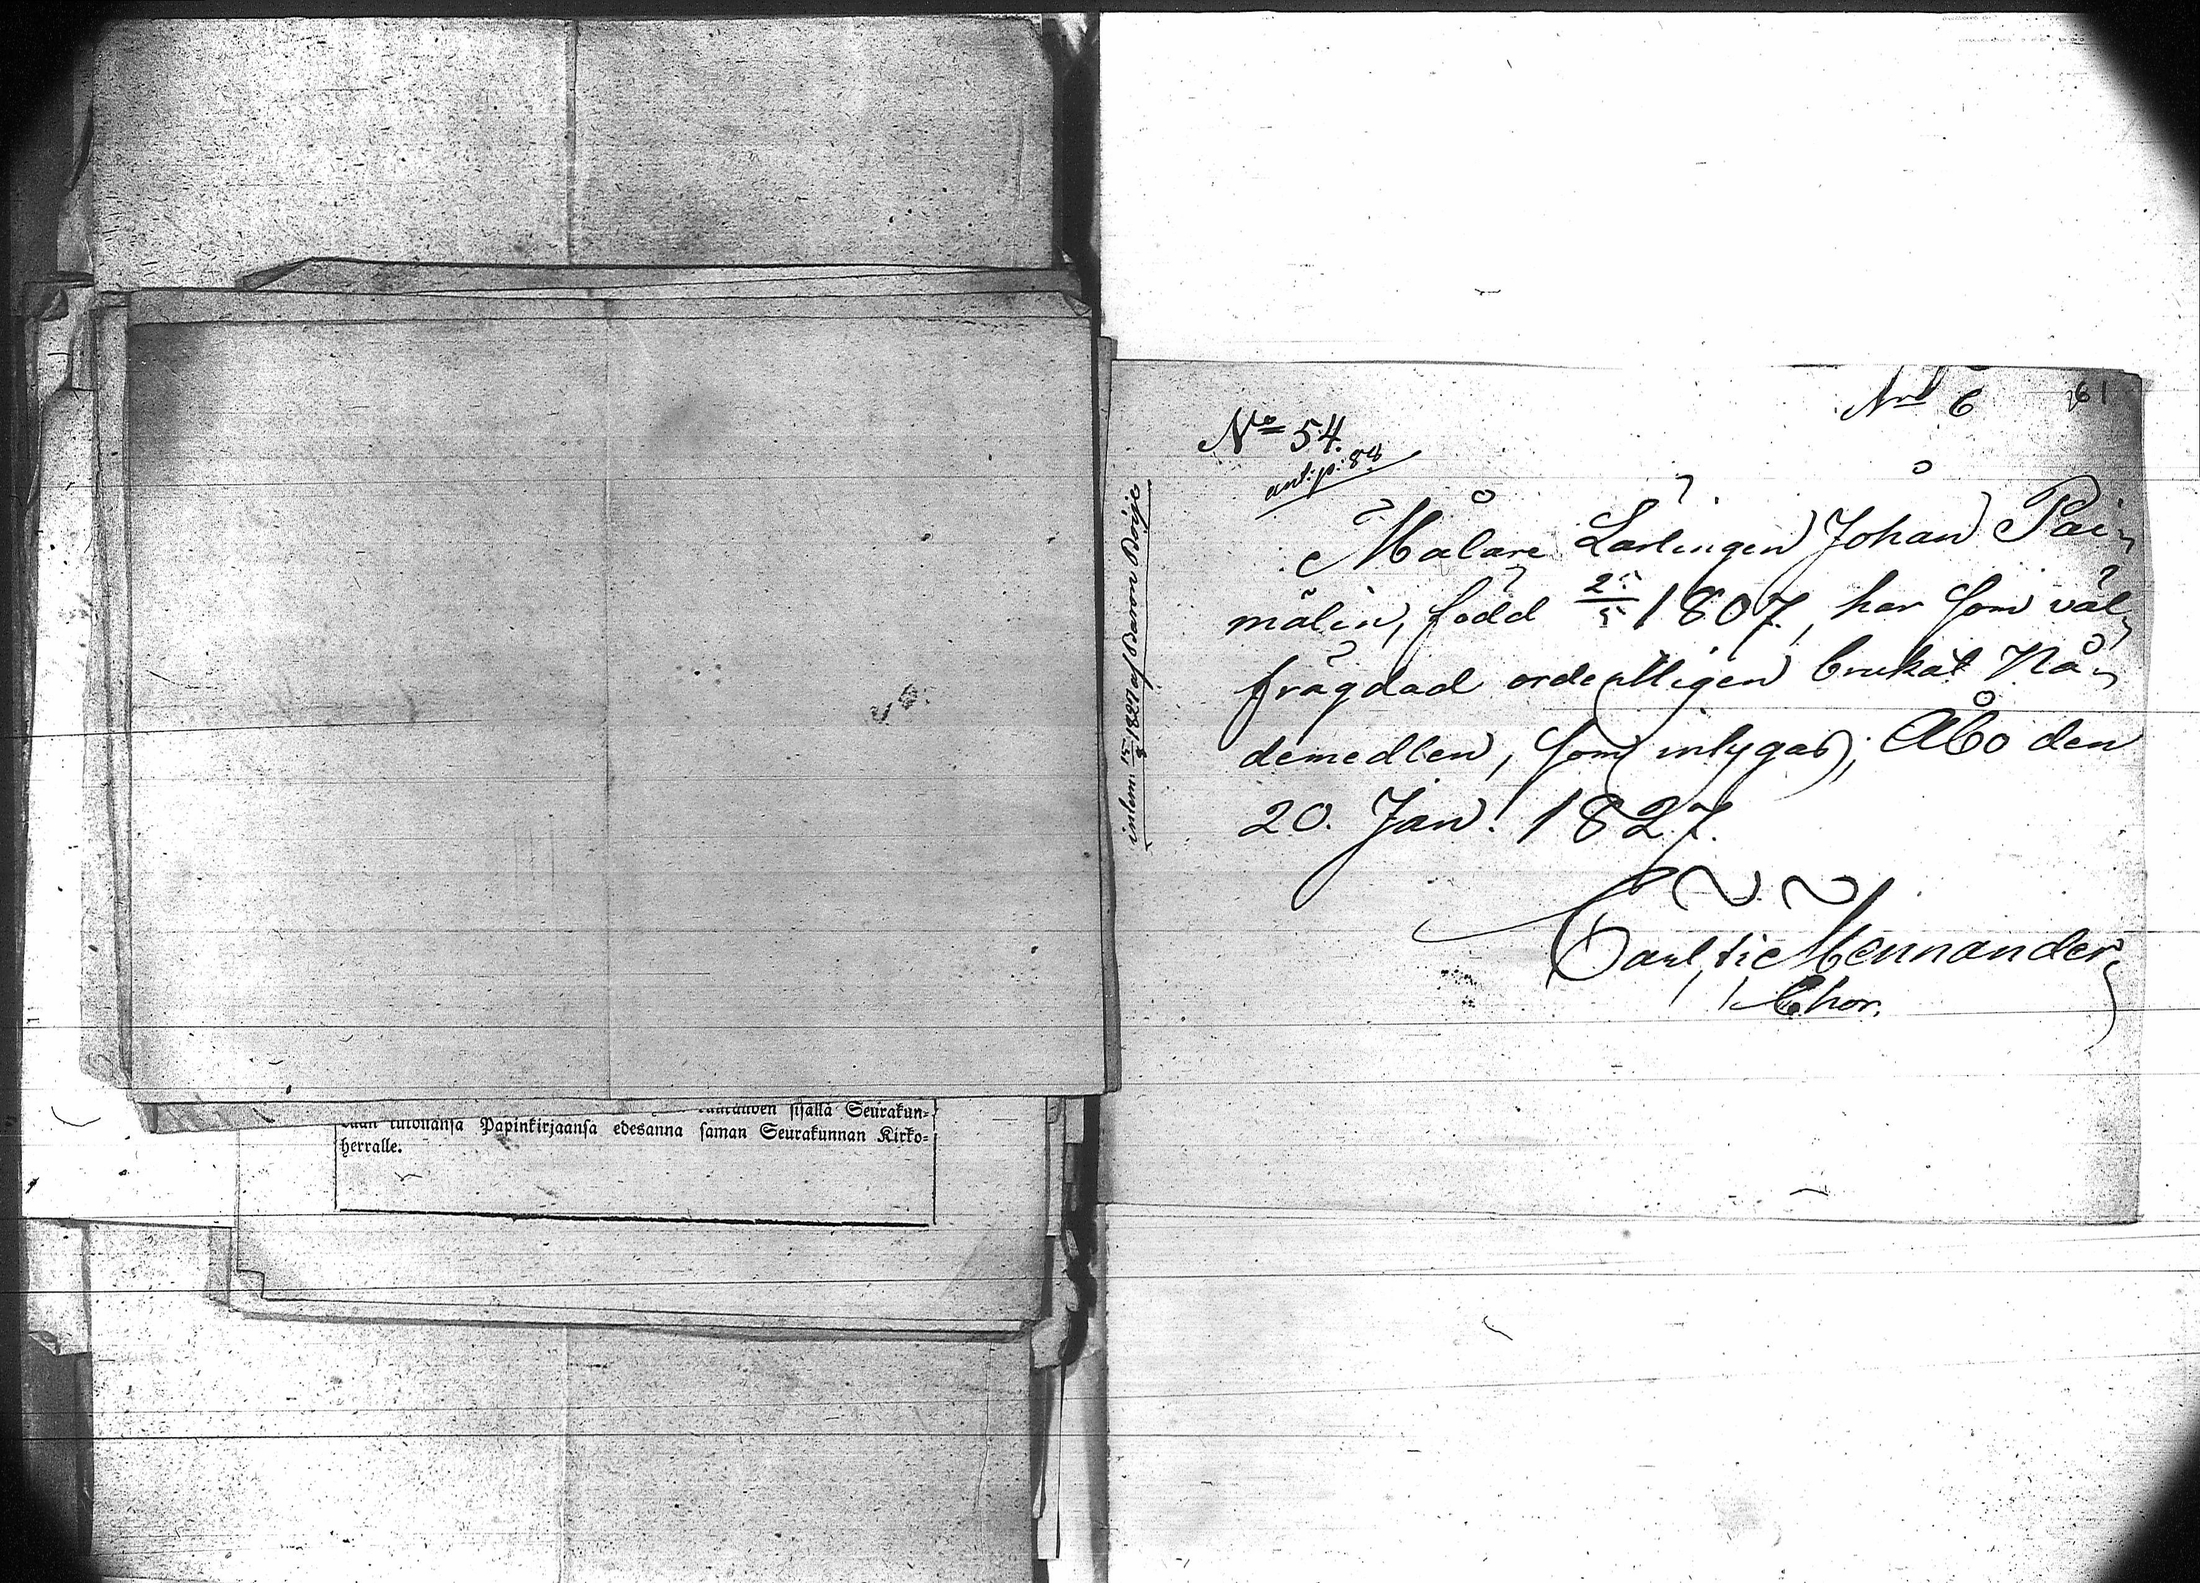 sisällä Seurakun-
Papinkirjaansa edesanna saman Seurakunnan Kirko-
herralle.
inlem. 15/3 1827 af Baron Boije
No 54.
ant: p: 88
No 6
61
Målare Lärlingen Johan Pai-
målin, född 25/5 1807, har som väl-
frägdad ordentligen brukat Nå-
demedlen, som intygas; Åbo den
20. Jan. 1827.
Mennander,